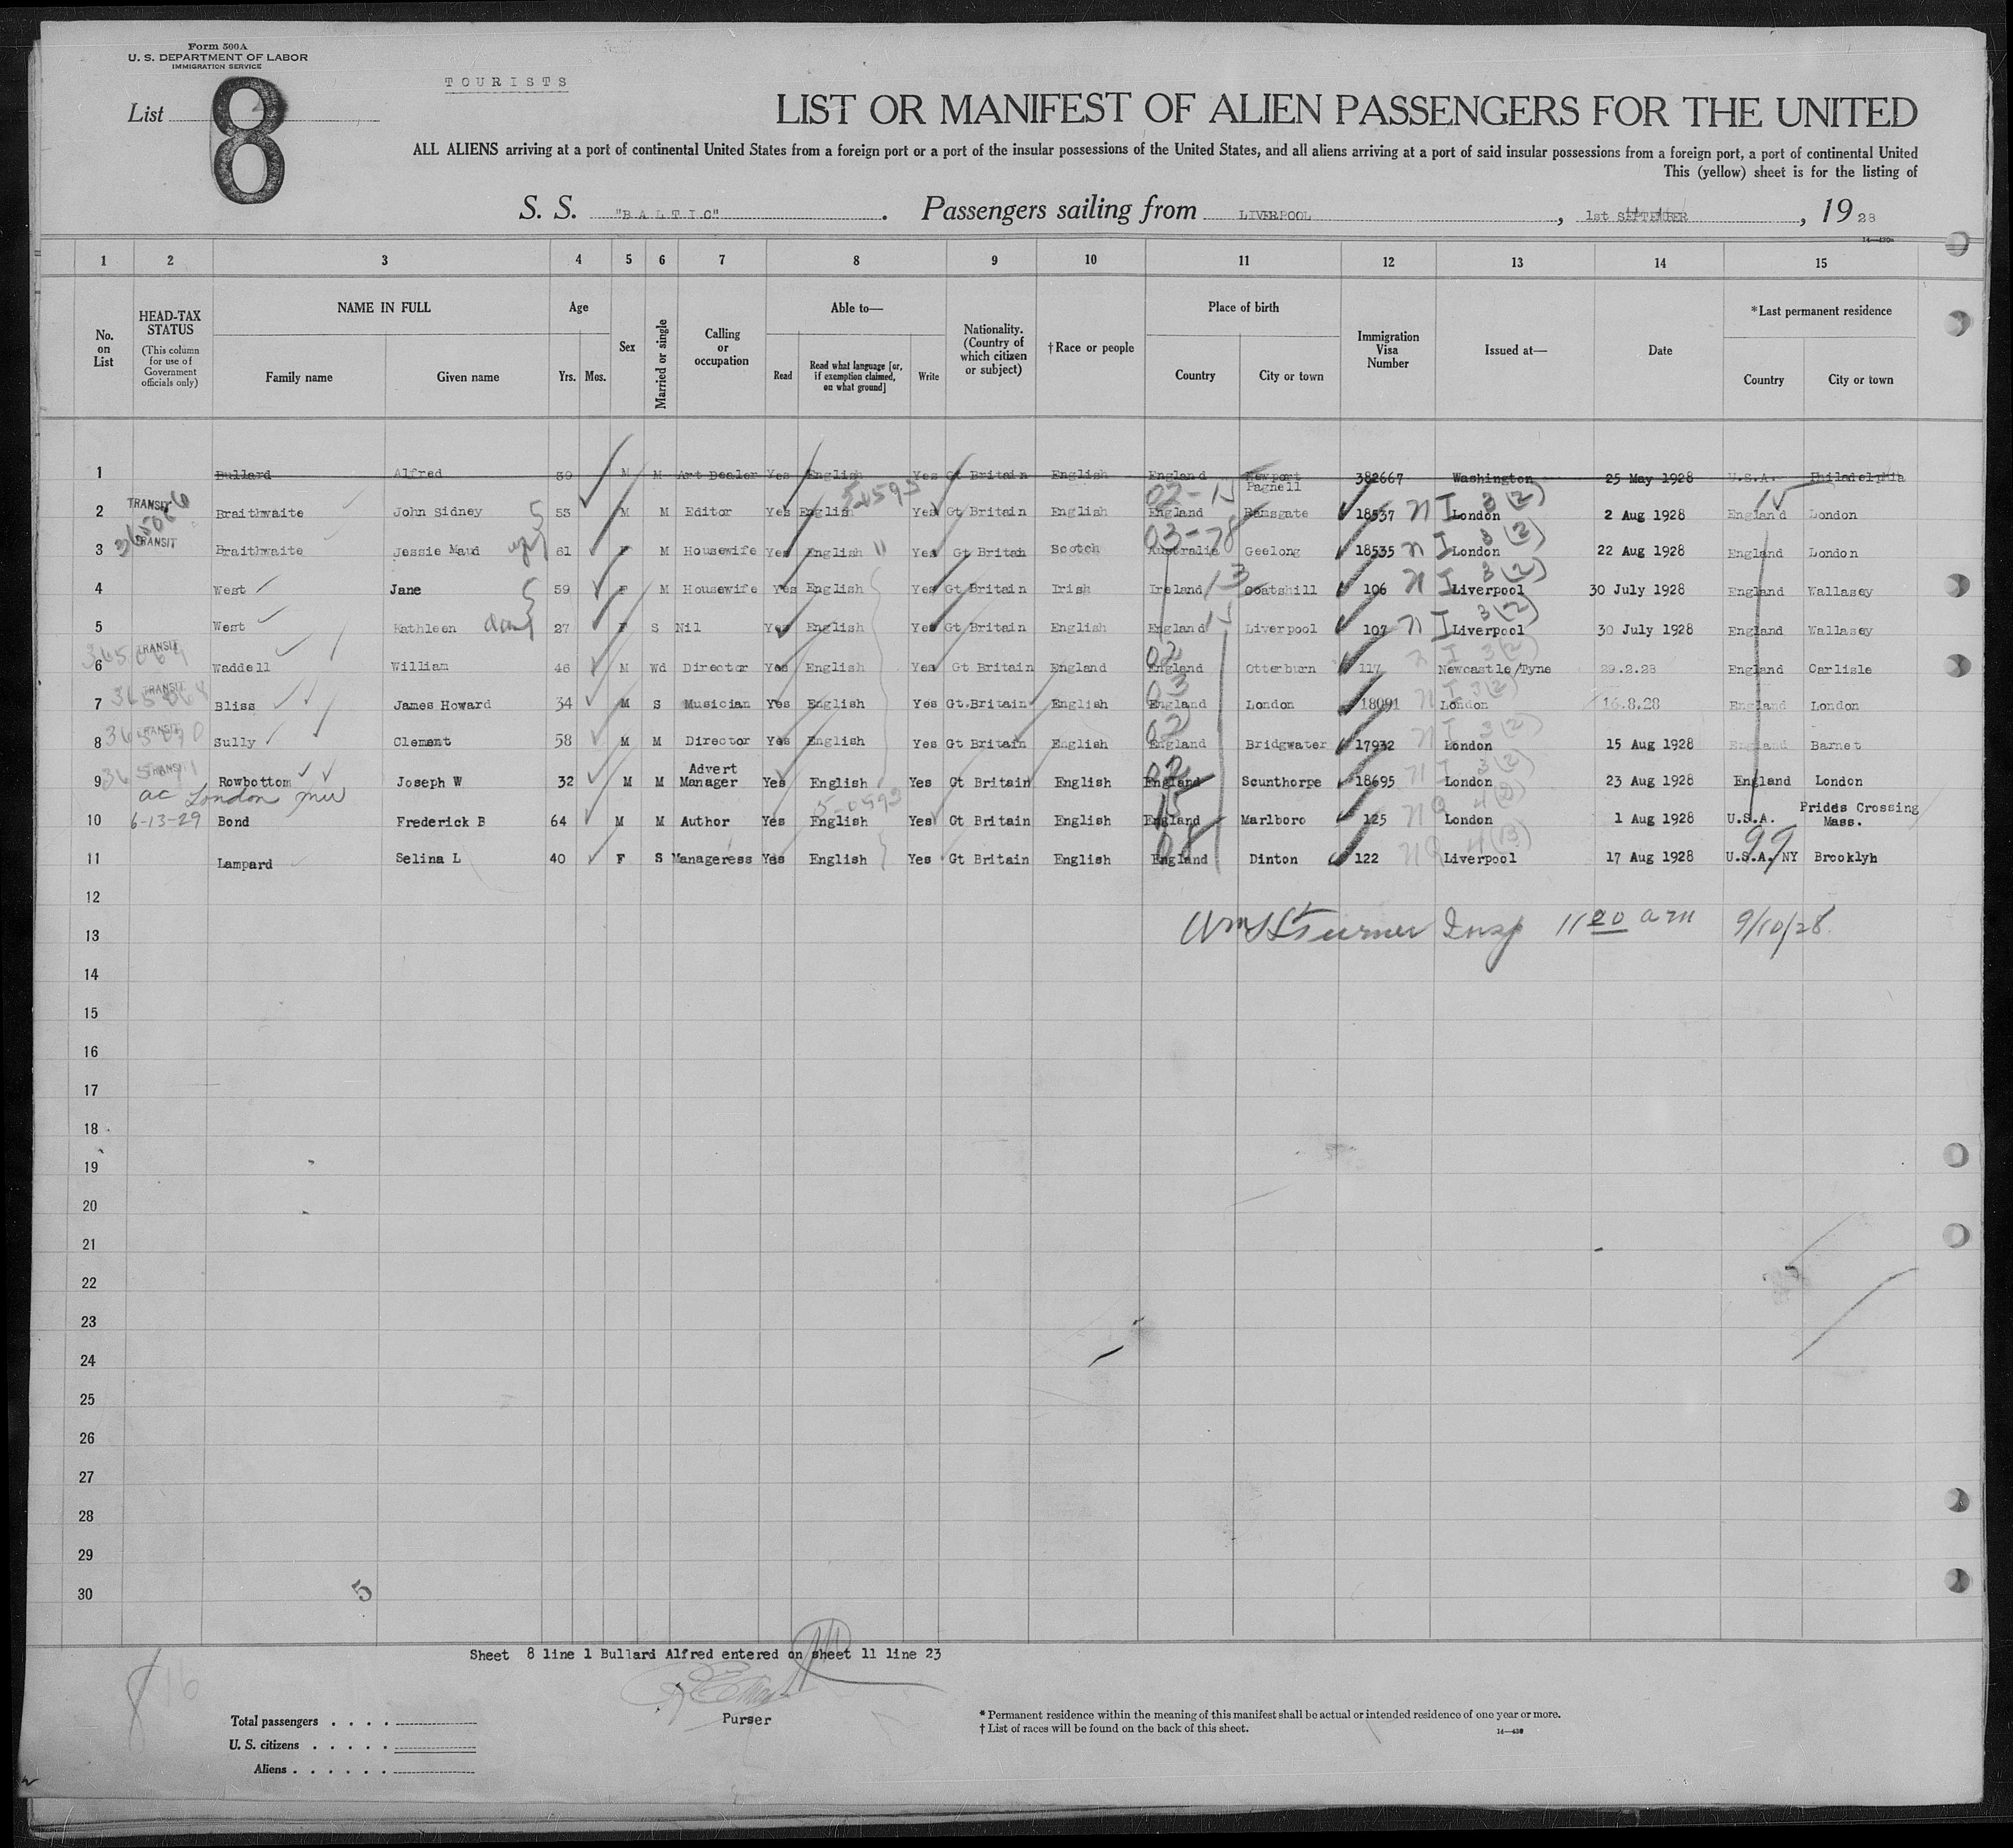 Form 500A
U. S. DEPARTMENT OF LABOR
IMMIGRATION SERVICE
TOURISTS
List 8
LIST OR MANIFEST OF ALIEN PASSENGERS FOR THE UNITED
ALL ALIENS arriving at a port of continental United States from a foreign port or a port of the insular possessions of the United States, and all aliens arriving at a port of said insular possessions from a foreign port, a port of continental United
This (yellow) sheet is for the listing of
S. S. "BALTIC". Passengers sailing from LIVERPOOL, 1st SEPTEMBER, 1928
14—430a
1 2 3 4 5 6 7 8 9 10 11 12 13 14 15
No. on List
HEAD-TAX STATUS
(This column for use of Government officials only)
NAME IN FULL
Family name Given name
Age
Yrs. Mos.
Sex
Married or single
Calling or occupation
Able to—
Read Read what language [or, if exemption claimed, on what ground] Write
Nationality. (Country of which citizen or subject)
†Race or people
Place of birth
Country City or town
Immigration Visa Number
Issued at—
Date
*Last permanent residence
Country City or town
1 Bullard Alfred 59 M M Art Dealer Yes English Yes Gt Britain English England Newport Pagnell 382667 Washington 25 May 1928 U.S.A. Philadelphia
TRANSIT 54593 02-15 15
2 Braithwaite John Sidney 53 M M Editor Yes English Yes Gt Britain English England Ramsgate 18537 n I 3(2) London 2 Aug 1928 England London
TRANSIT 03-78
3 Braithwaite Jessie Maud 61 F M Housewife Yes English " Yes Gt Britan Scotch Australia Geelong 18535 n I 3(2) London 22 Aug 1928 England London
4 West Jane 59 F M Housewife Yes English Yes Gt Britain Irish Ireland 13 Coatshill 106 n I 3(2) Liverpool 30 July 1928 England Wallasey
5 West Kathleen dau 27 F S Nil Yes English Yes Gt Britain English England 15 Liverpool 107 n I 3(2) Liverpool 30 July 1928 England Wallasey
TRANSIT 02
6 Waddell William 46 M Wd Director Yes English Yes Gt Britain England England Otterburn 117 n I 3(2) Newcastle/Tyne 29.2.28 England Carlisle
TRANSIT 365068 03
7 Bliss James Howard 34 M S Musician Yes English Yes Gt.Britain English England London 18091 n I 3(2) London 16.8.28 England London
TRANSIT 365070 02
8 Sully Clement 58 M M Director Yes English Yes Gt Britain English England Bridgwater 17932 n I 3(2) London 15 Aug 1928 England Barnet
TRANSIT 365071 02
9 Rowbottom Joseph W 32 M M Advert Manager Yes English Yes Gt Britain English England Scunthorpe 18695 n I 3(2) London 23 Aug 1928 England London
ac London 15
10 6-13-29 Bond Frederick B 64 M M Author Yes English Yes Gt Britain English England Marlboro 125 n Q 4(2) London 1 Aug 1928 U.S.A. Prides Crossing Mass.
08 99
11 Lampard Selina L 40 F S Manageress Yes English Yes Gt Britain English England Dinton 122 n Q 4(13) Liverpool 17 Aug 1928 U.S.A. NY Brooklyn
12
Wm H Turner Insp 11 20 am 9/10/28
13
14
15
16
17
18
19
20
21
22
23
24
25
26
27
28
29
30
5
Sheet 8 line 1 Bullard Alfred entered on sheet 11 line 23
Purser
Total passengers . . . .
U. S. citizens . . . . .
Aliens . . . . . .
* Permanent residence within the meaning of this manifest shall be actual or intended residence of one year or more.
† List of races will be found on the back of this sheet.
14—430